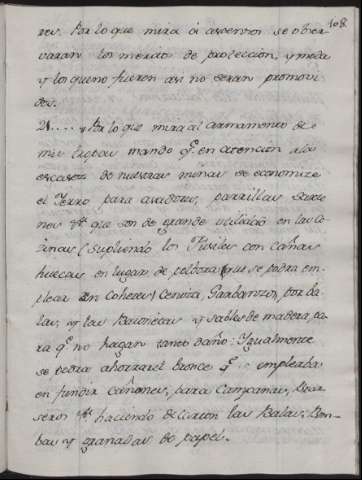 108
res. Por lo que mira á ascensos se obser
varan los meritos de proteccion, y moda
y los que no fueren asi no seran promovi
dos.
21.... y Por lo que mira al armamento de
mis tropas mando q.e en atencion a la
escasez de nuestras minas se economize
el Yerro para asadores, parrillas sarte
nes &.a que son de grande utilidad en las co
zinas (supliendo los Fusiles con cañas
huecas en lugar de polvora que se podra em
plear en Cohetes) Ceniza, Garbanzos, por ba
las, y las Baionetas y sables de madera, pa
ra q.e no hagan tanto daño: Igualmente
se podra ahorrar el bronce q.e se empleaba
en fundir cañones, para Campanas, Brar
seros &.a haciendo de Carton las Balas, Bom-
bas y granadas de papel.